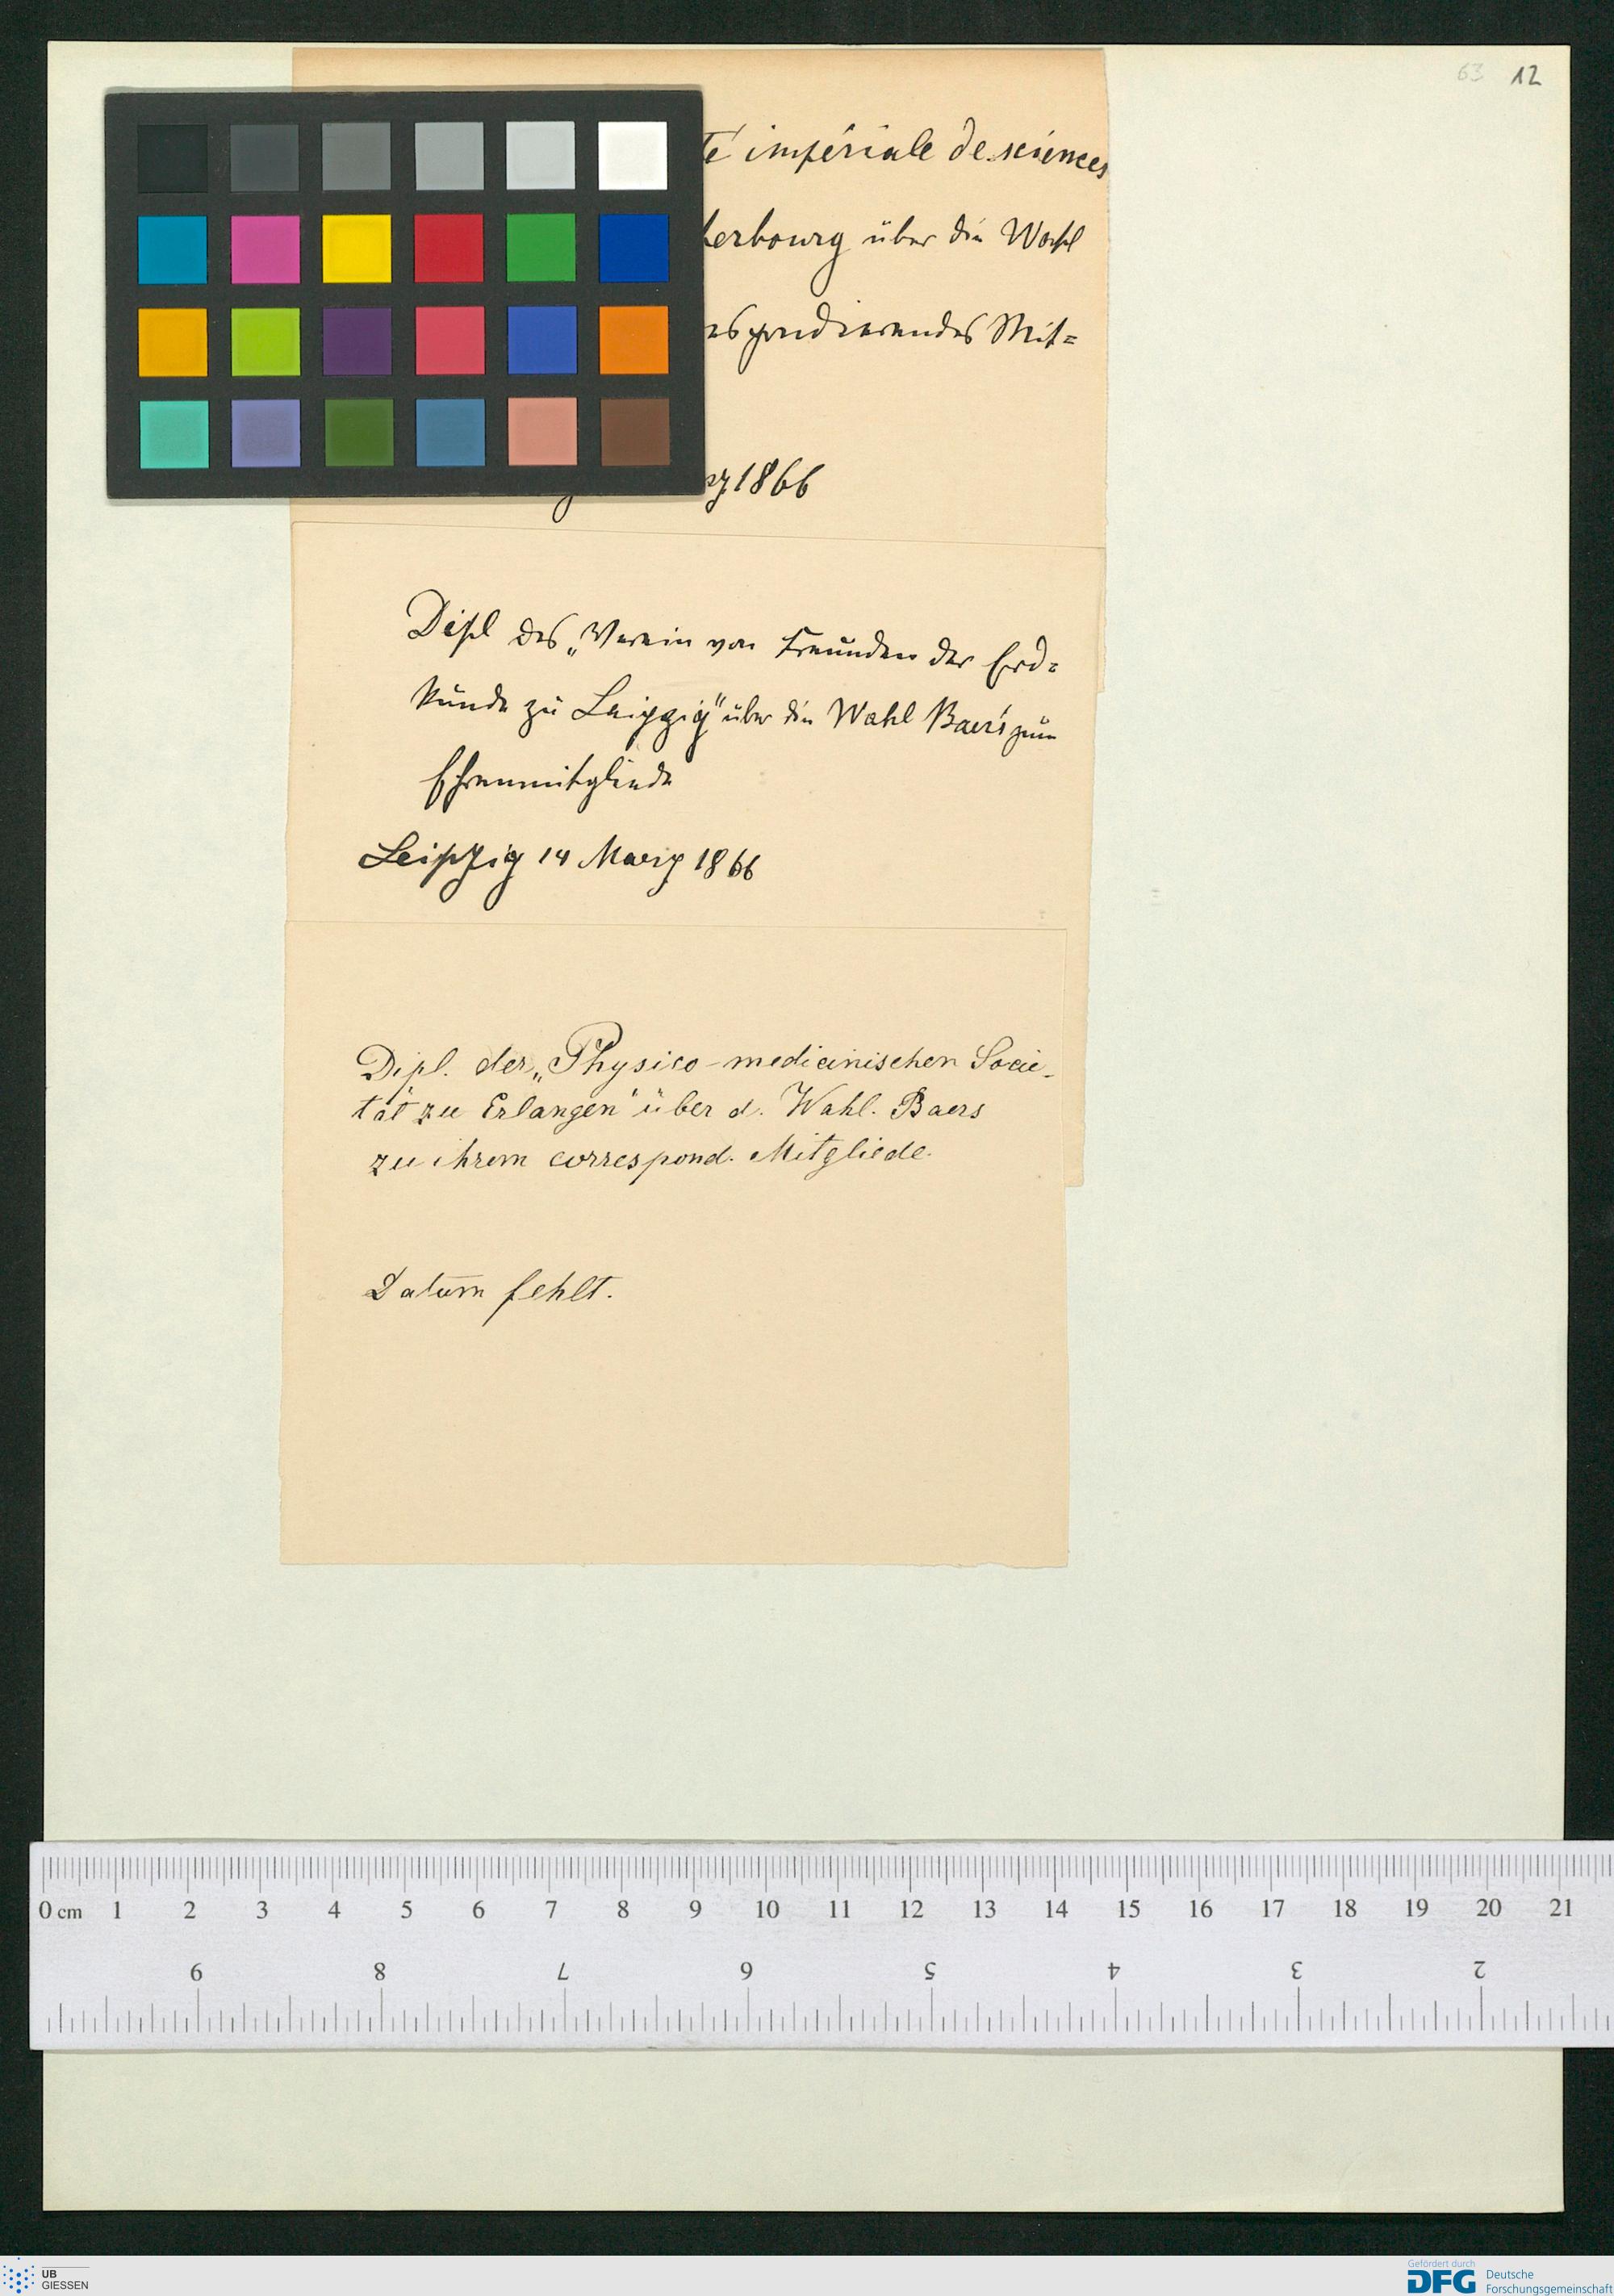 63 12
té impériale de sciences
terbourg über die Wahl
respondierendes Mit=
rz 1866
Dipl des „Verein von Freunden der Erd=
kunde zu Leipzig" über die Wahl Baer's zum
Ehrenmitgliede
Leipzig 14 Maerz 1866
Dipl. der „Physico-medicinischen Socie-
tät zu Erlangen" über d. Wahl. Baers
zu ihrem correspond. Mitgliede.
Datum fehlt.
0 cm 1 2 3 4 5 6 7 8 9 10 11 12 13 14 15 16 17 18 19 20 21
9 8 7 6 5 4 3 2
UB
GIESSEN
Gefördert durch
DFG Deutsche
Forschungsgemeinschaft